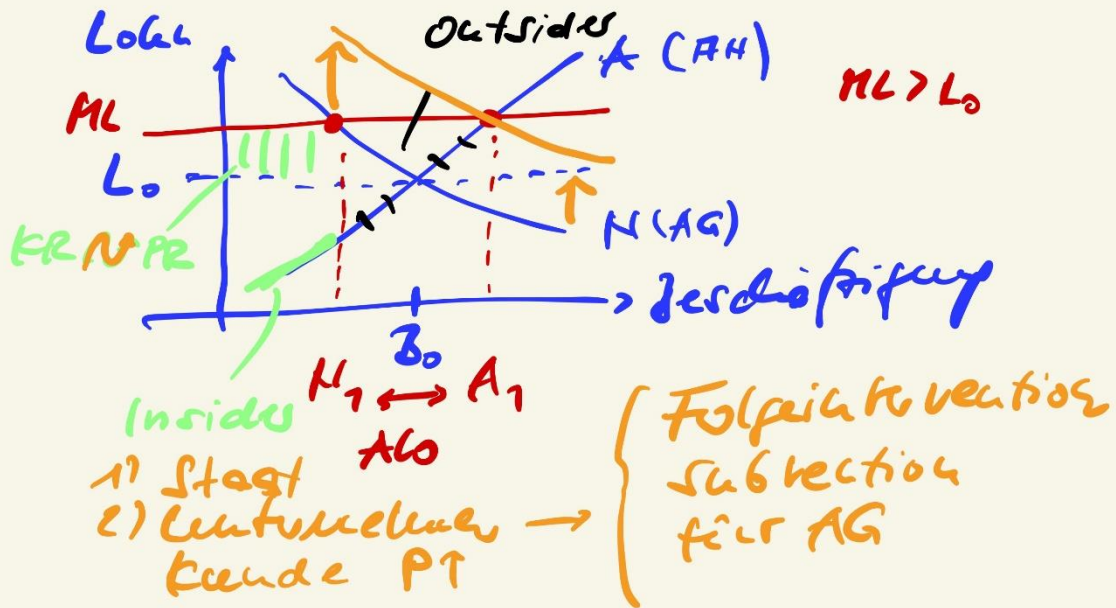 Lohn
Outsider
A (AN)
ML
ML > L₀
L₀
KR ~ PR
N (AG)
Beschäftigung
B₀
N₁ ↔ A₁
Insider
ALO
1) Staat
2) Unternehmer →
Kunde P↑
Folgeintervention
Subvention
für AG